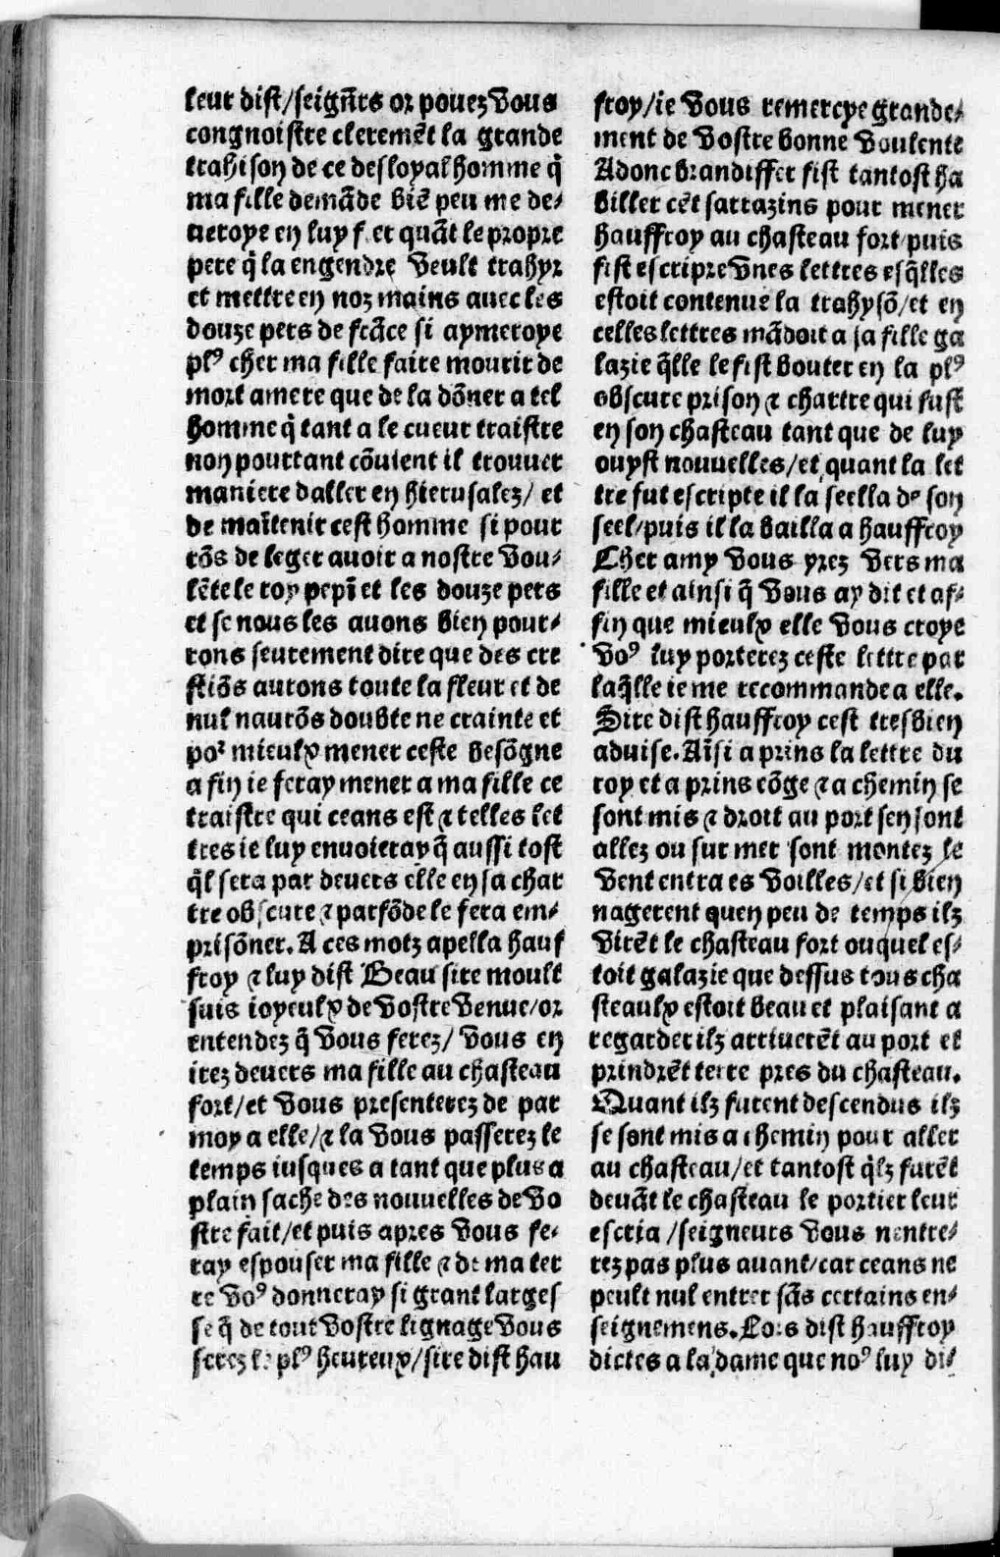 leur dist/seigñrs or pouez vous
congnoistre cleremẽt la grande
trahison de ce desloyal homme q̃
ma fille demãde biẽ peu me de-
ueroye en luy f.er quãt le propre
pere q̃ la engendre veult trahyr
et mettre en noz mains auec les
douze pers de frãce si aymeroye
plꝰ cher ma fille faire mourir de
mort amere que de la dõner a tel
homme q̃ tant a le cueur traistre
non pourtant cõuient il trouuer
maniere daller en hierusalez/ et
de maĩtenir cest homme si pour
rõs de leger auoir a nostre vou-
lẽte le roy pepĩ et les douze pers
et se nous les auons bien pour-
rons seurement dire que des cre
stiẽs aurons toute la fleur et de
nul naurõs doubte ne crainte et
por mieulx mener ceste besõgne
a fin ie feray mener a ma fille ce
traistre qui ceans est ⁊ telles let
tres ie luy enuoieray q̃ aussi tost
q̃l sera par deuers elle en sa char
tre obscure ⁊ parfõde le fera em-
prisõner. A ces motz apella hauf
froy ⁊ luy dist Beau sire moult
suis ioyeulx de vostre venue/or
entendez q̃ vous ferez/ vous en
irez deuers ma fille au chasteau
fort/et vous presenterez de par
moy a elle/⁊ la vous passerez le
temps iusques a tant que plus a
plain sache des nouuelles de vo
stre fait/et puis apres vous fe-
ray espouser ma fille ⁊ de ma ter
re voꝰ donneray si grant larges
se q̃ de tout vostre lignage vous
serez le plꝰ heureux/sire dist hau
froy/ie vous remercye grande-
ment de vostre bonne voulente
Adonc brandiffer fist tantost ha
biller cẽt sarrazins pour mener
hauffroy au chasteau fort puis
fist escripre vnes lettres esq̃lles
estoit contenue la trahysõ/et en
celles lettres mãdoit a sa fille ga
lazie q̃lle le fist bouter en la plꝰ
obscure prison ⁊ chartre qui fust
en son chasteau tant que de luy
ouyst nouuelles/et quant la let
tre fut escripte il la seella de son
seel/puis il la bailla a hauffroy
Cher amy vous yrez vers ma
fille et ainsi q̃ vous ay dit et af-
fin que mieulx elle vous croye
voꝰ luy porterez ceste lettre par
laq̃lle ie me recommande a elle.
Sire dist hauffroy cest tresbien
aduise. Aĩsi a prins la lettre du
roy et a prins cõge ⁊ a chemin se
sont mis ⁊ droit au port sen sont
allez ou sur mer sont montez le
vent entra es voilles/et si bien
nagerent quen peu de temps ilz
virẽt le chasteau fort ouquel es-
toit galazie que dessus tous cha
steaulx estoit beau et plaisant a
regarder ilz arriuerẽt au port et
prindrẽt terre pres du chasteau.
Quant ilz furent descendus ilz
se sont mis a chemin pour aller
au chasteau/et tantost q̃lz furẽt
deuãt le chasteau le portier leur
escria /seigneurs vous nentre-
rez pas plus auant/car ceans ne
peult nul entrer sãs certains en-
seignemens. Lors dist hauffroy
dictes a la dame que noꝰ luy di-